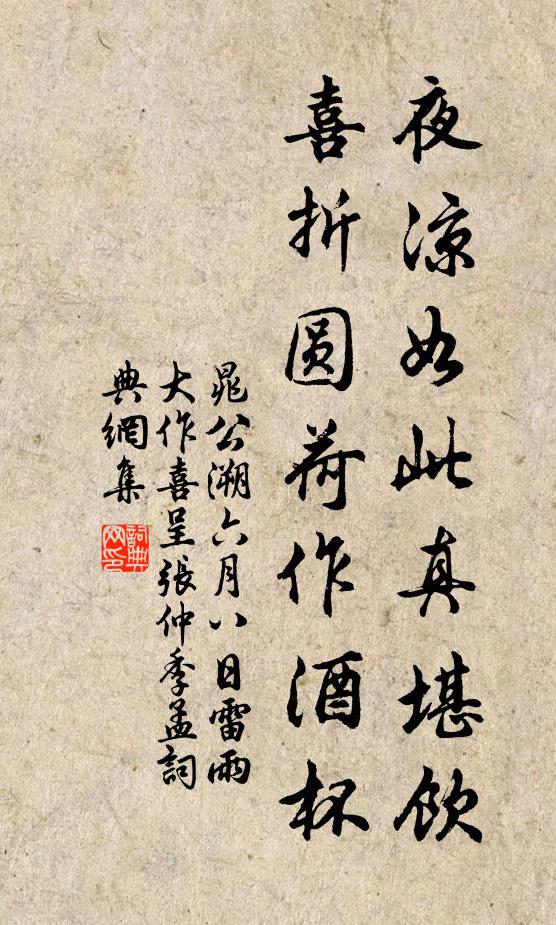 夜凉如此真堪飲
喜折圆荷作酒杯
晁公溯六月八日雷雨
大作喜呈張仲季孟詞
典網集
詞典网印